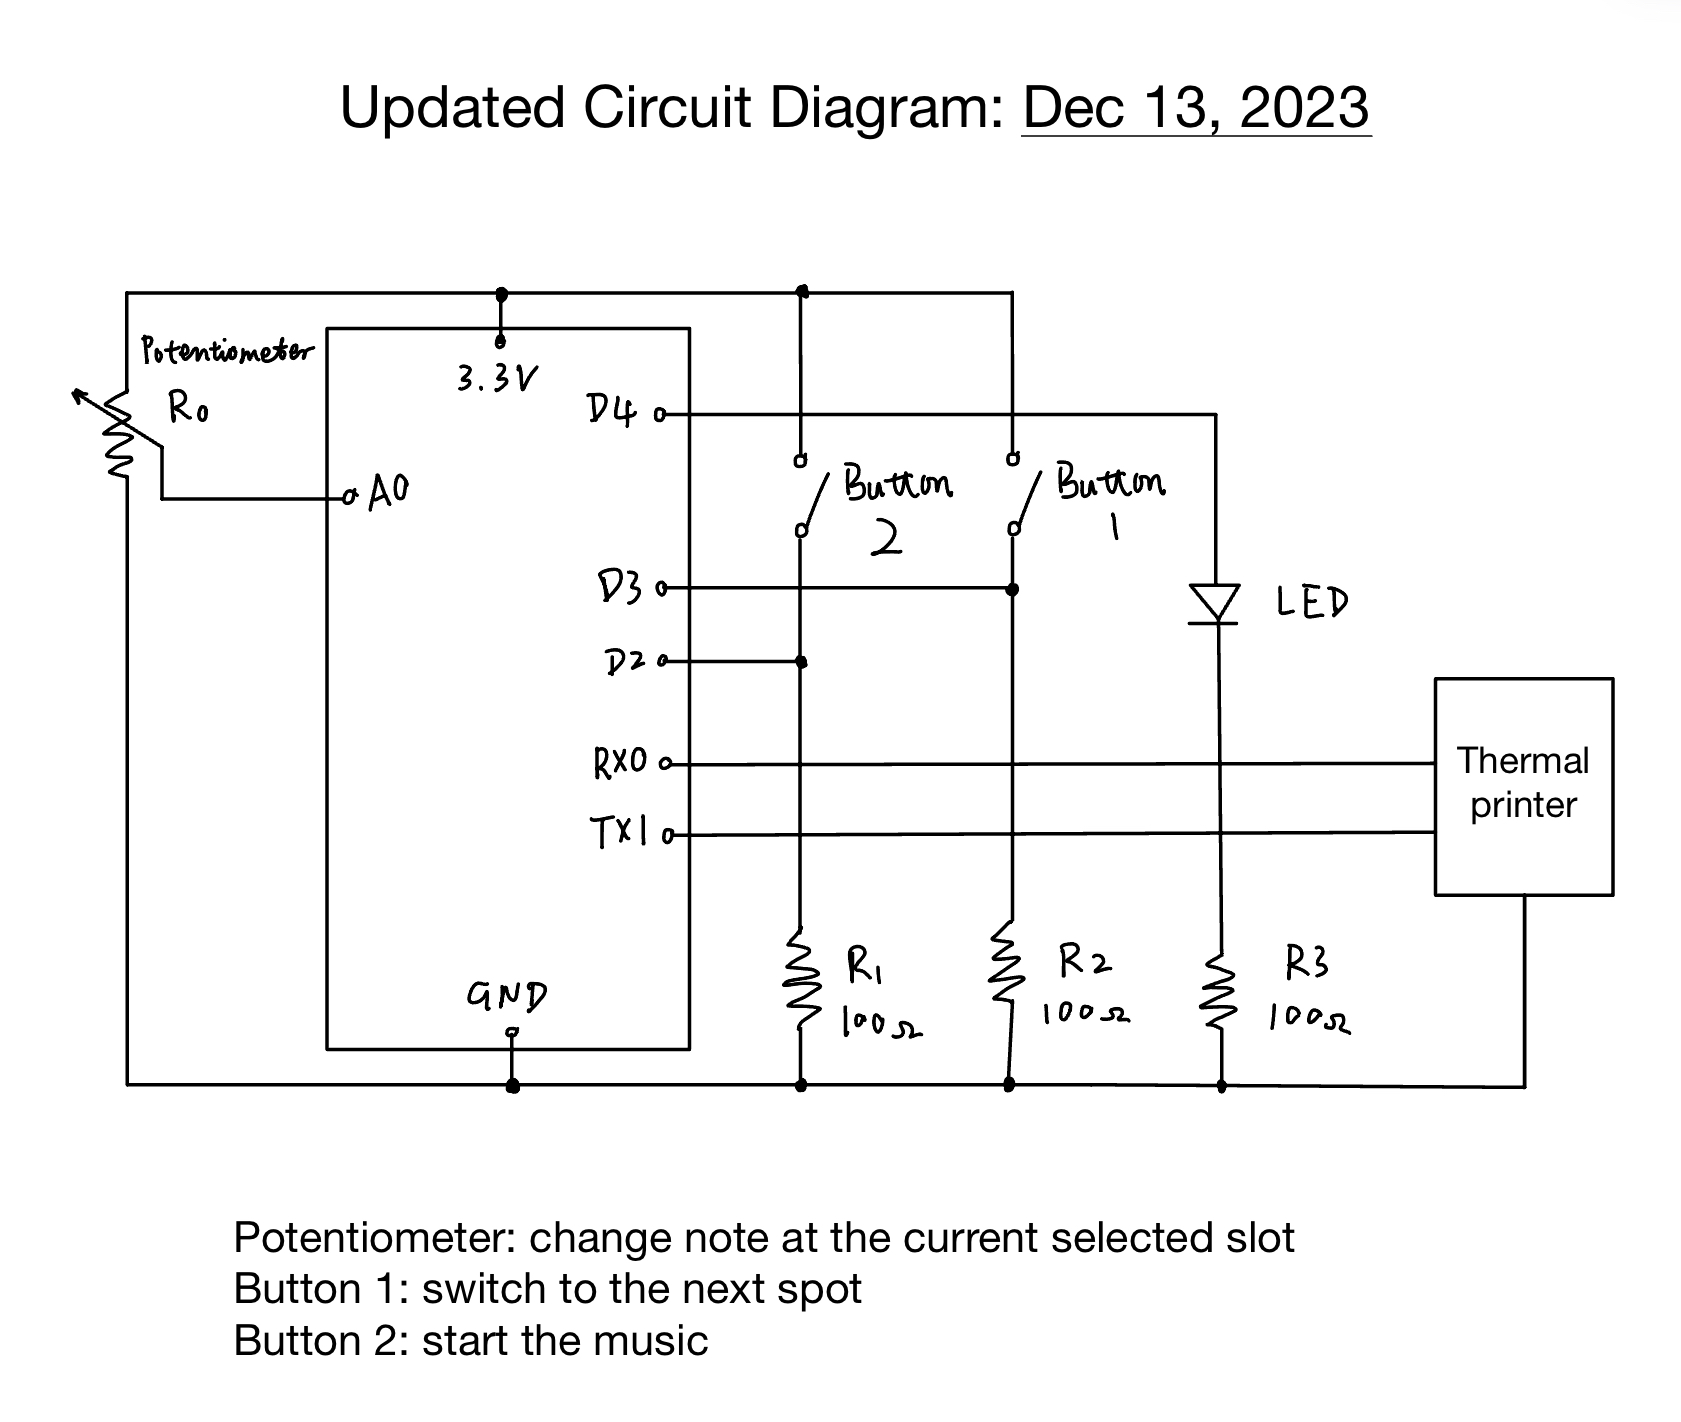 Updated Circuit Diagram: Dec 13, 2023
Potentiometer
R0
3.3V
D4
A0
Button
2
Button
1
D3
LED
D2
RX0
Thermal
printer
TX1
R1
100Ω
R2
100Ω
R3
100Ω
GND
Potentiometer: change note at the current selected slot
Button 1: switch to the next spot
Button 2: start the music